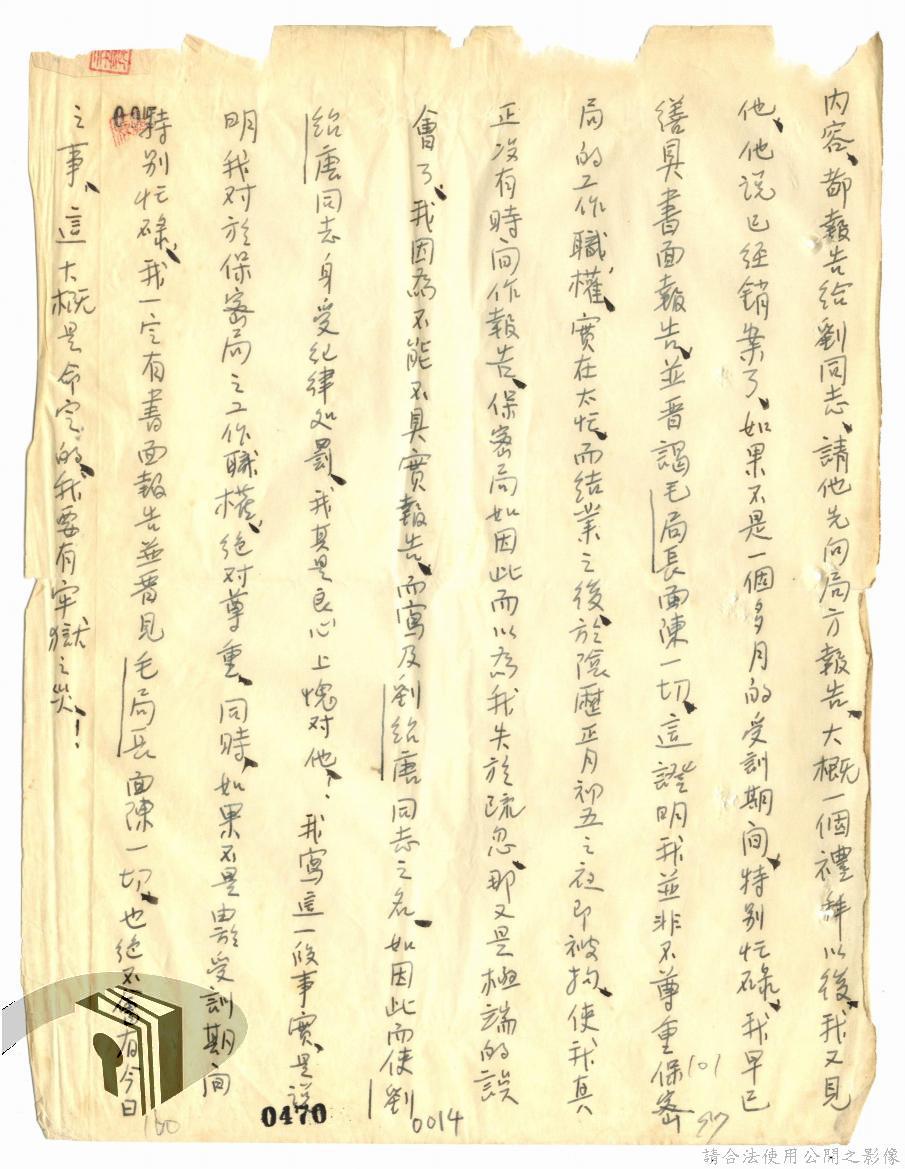 內容、都報告給劉同志、請他先向局方報告、大概一個禮拜以後、我又見
他、他說已經銷案了、如果不是一個多月的受訓期间、特别忙碌、我早已
繕具書面報告、並晋謁毛局長面陳一切、這證明我並非不尊重保密
局的工作職權、實在太忙、而结業之後、於陰歷正月初五之夜即被拘、使我真
正没有時间作報告、保密局如因此而以為我失於疏忽、那又是極端的誤
會了、我因為不能不具實報告、而寫及劉紹唐同志之名、如因此而使劉
紹唐同志身受纪律处罰、我真是良心上愧对他！我寫這一段事實、是説
明我对於保密局之工作職權、绝对尊重、同時、如果不是由於受訓期间
特别忙碌、我一定有書面報告並晋見毛局長面陳一切、也绝不會有今日
之事、這大概是命定的、我要有牢獄之災！
101
97
0014
0470
100
請合法使用公開之影像